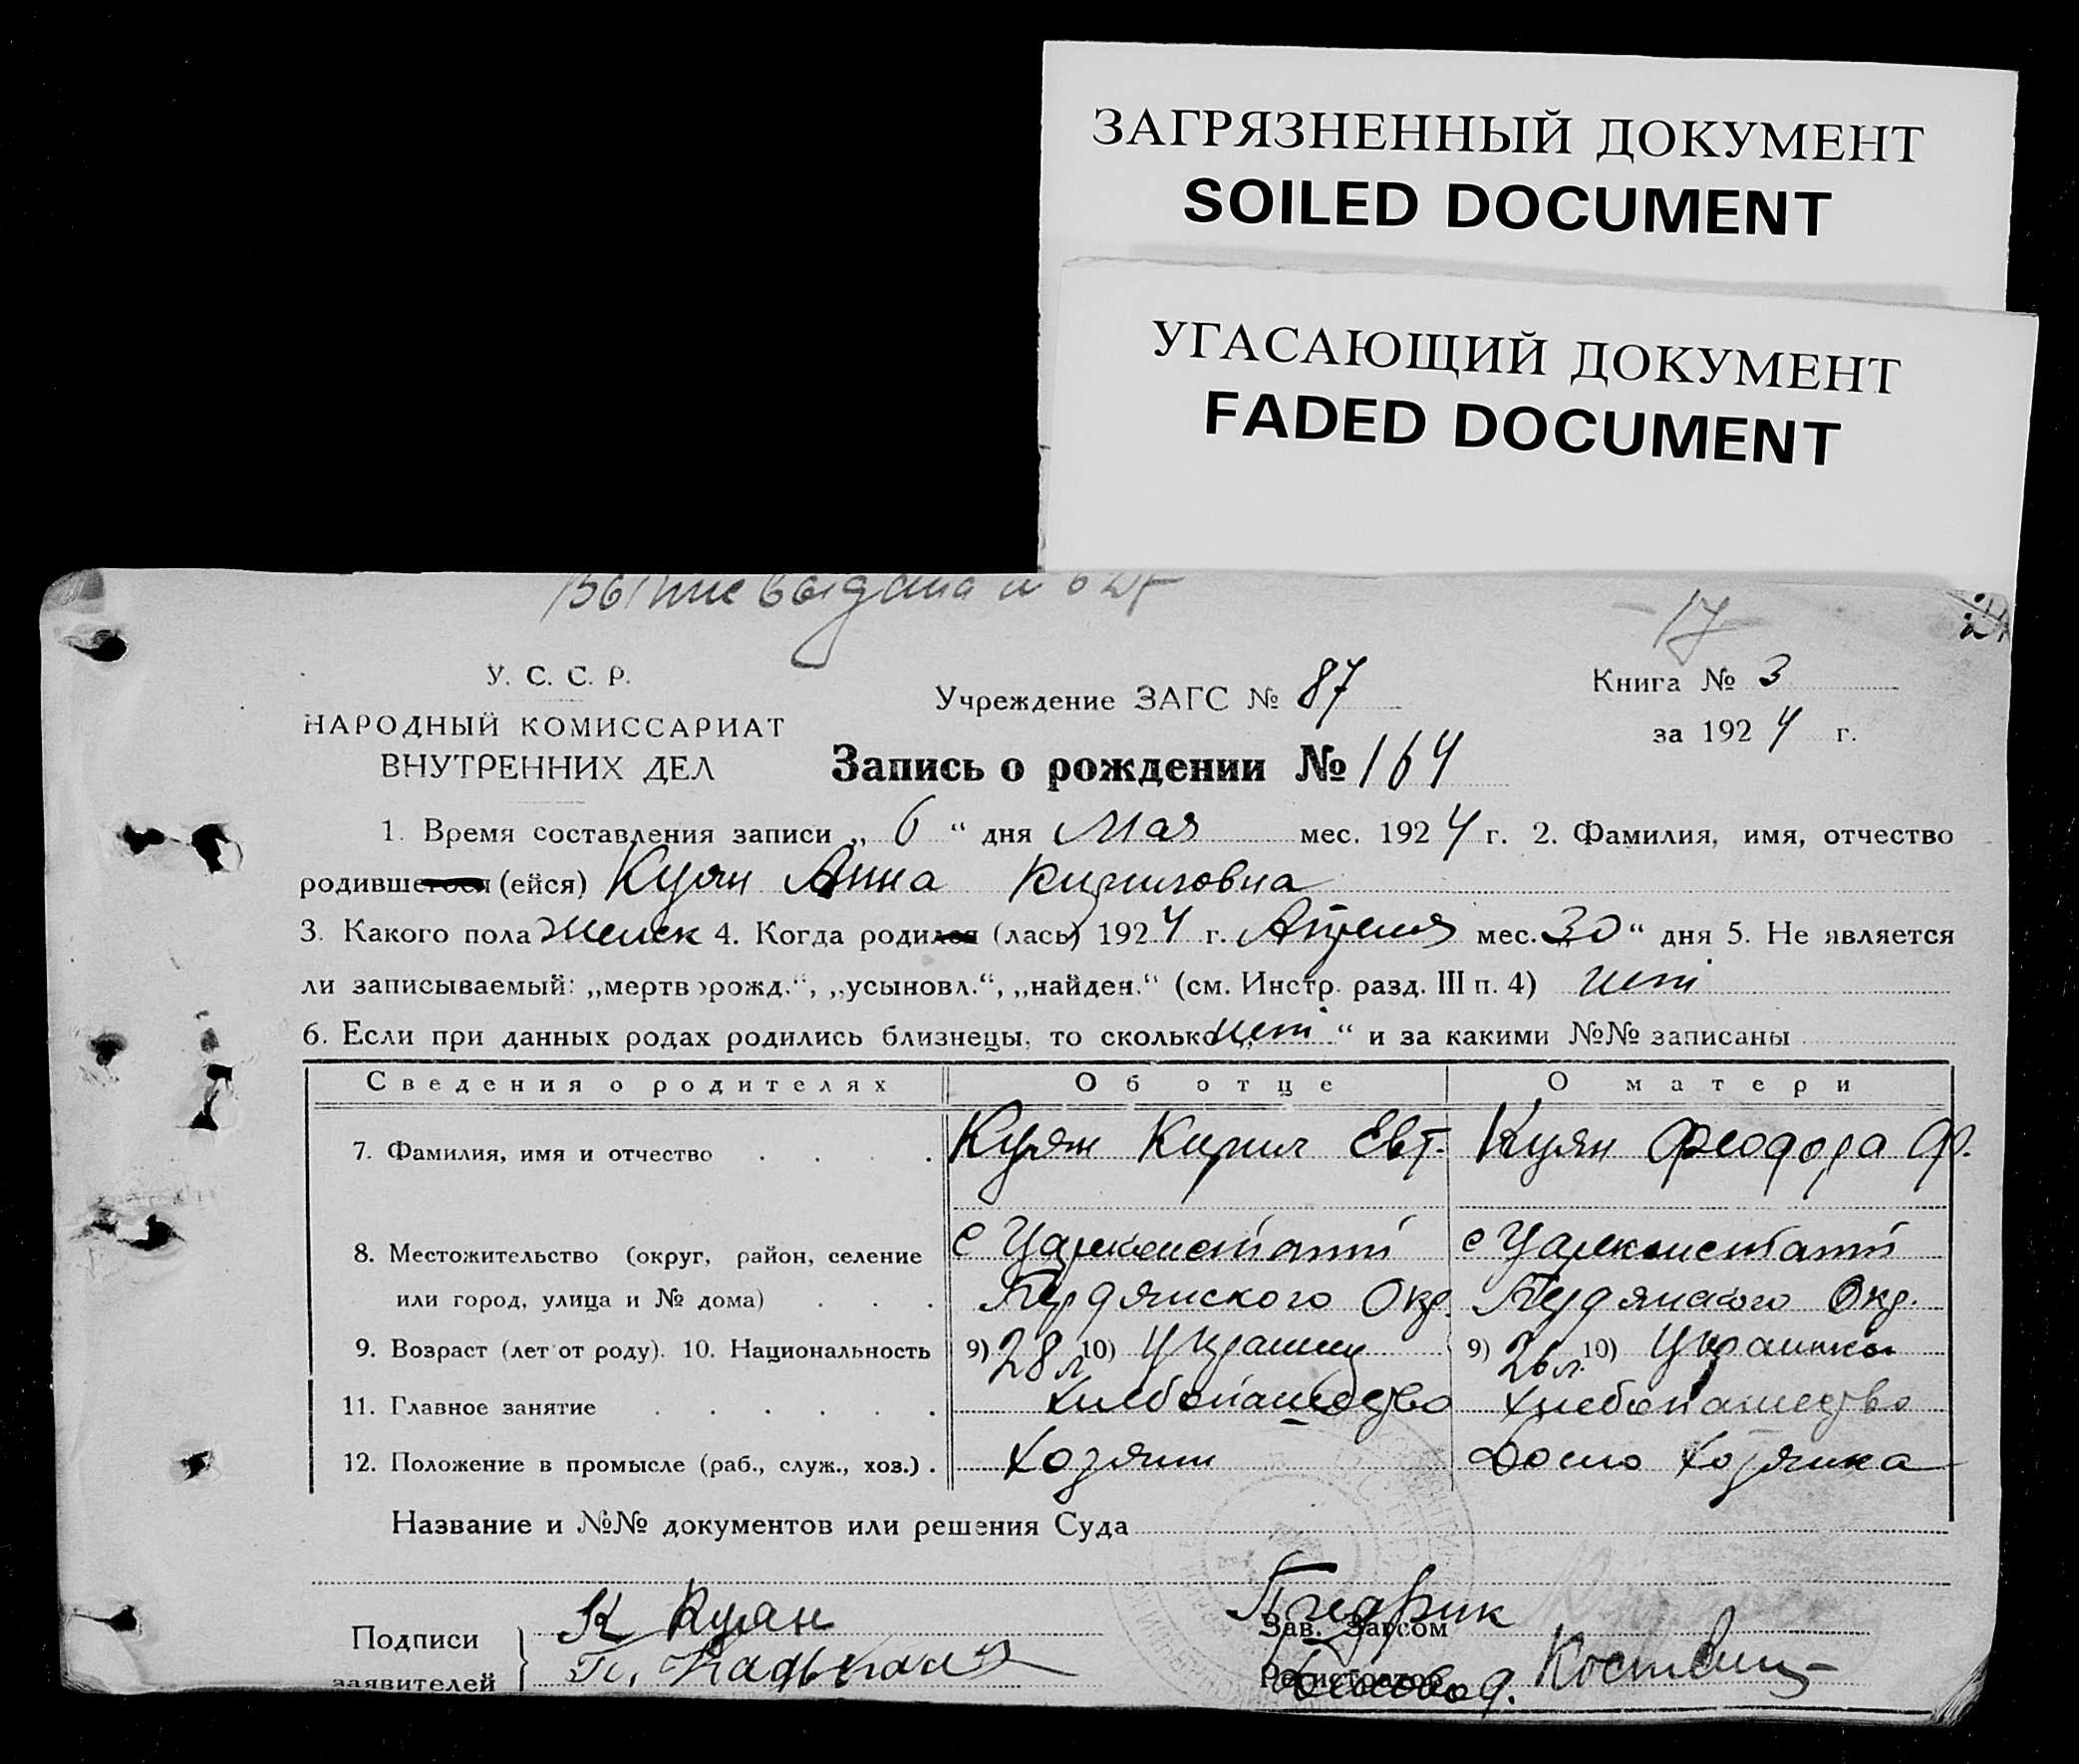 ЗАГРЯЗНЕННЫЙ ДОКУМЕНТ
SOILED DOCUMENT
УГАСАЮЩИЙ ДОКУМЕНТ
FADED DOCUMENT
выдана
17
У. С. С. Р.
Учреждение ЗАГС № 87
Книга № 3
НАРОДНЫЙ КОМИССАРИАТ
за 1924 г.
ВНУТРЕННИХ ДЕЛ
Запись о рождении № 164
1. Время составления записи „ 6 “ дня Мая мес. 1924 г. 2. Фамилия, имя, отчество
родившегося (ейся) Куян Анна Кириловна
3. Какого пола Женск 4. Когда родился (лась) 1924 г. Апреля мес. 30 “ дня 5. Не является
ли записываемый: „мертворожд.“, „усыновл.“, „найден.“ (см. Инстр. разд. III п. 4) нет
6. Если при данных родах родились близнецы, то сколько „нет “ и за какими №№ записаны
Сведения о родителях Об отце О матери
7. Фамилия, имя и отчество . . . . Куян Кирил Евт. Куян Феодора Ф.
8. Местожительство (округ, район, селение с Цареконстант с Цареконстант
или город, улица и № дома) . . . Бердянского Окр. Бердянского Окр.
9. Возраст (лет от роду). 10. Национальность 9) 28 л 10) Украинец 9) 26 л. 10) Украинка
11. Главное занятие . . . . . . Хлебопашество Хлебопашество
12. Положение в промысле (раб., служ., хоз.) . Хозяин Домо Хозяика
Название и №№ документов или решения Суда
Подписи К Куян Зав. Загсом
заявителей П. Регистратор Костевич